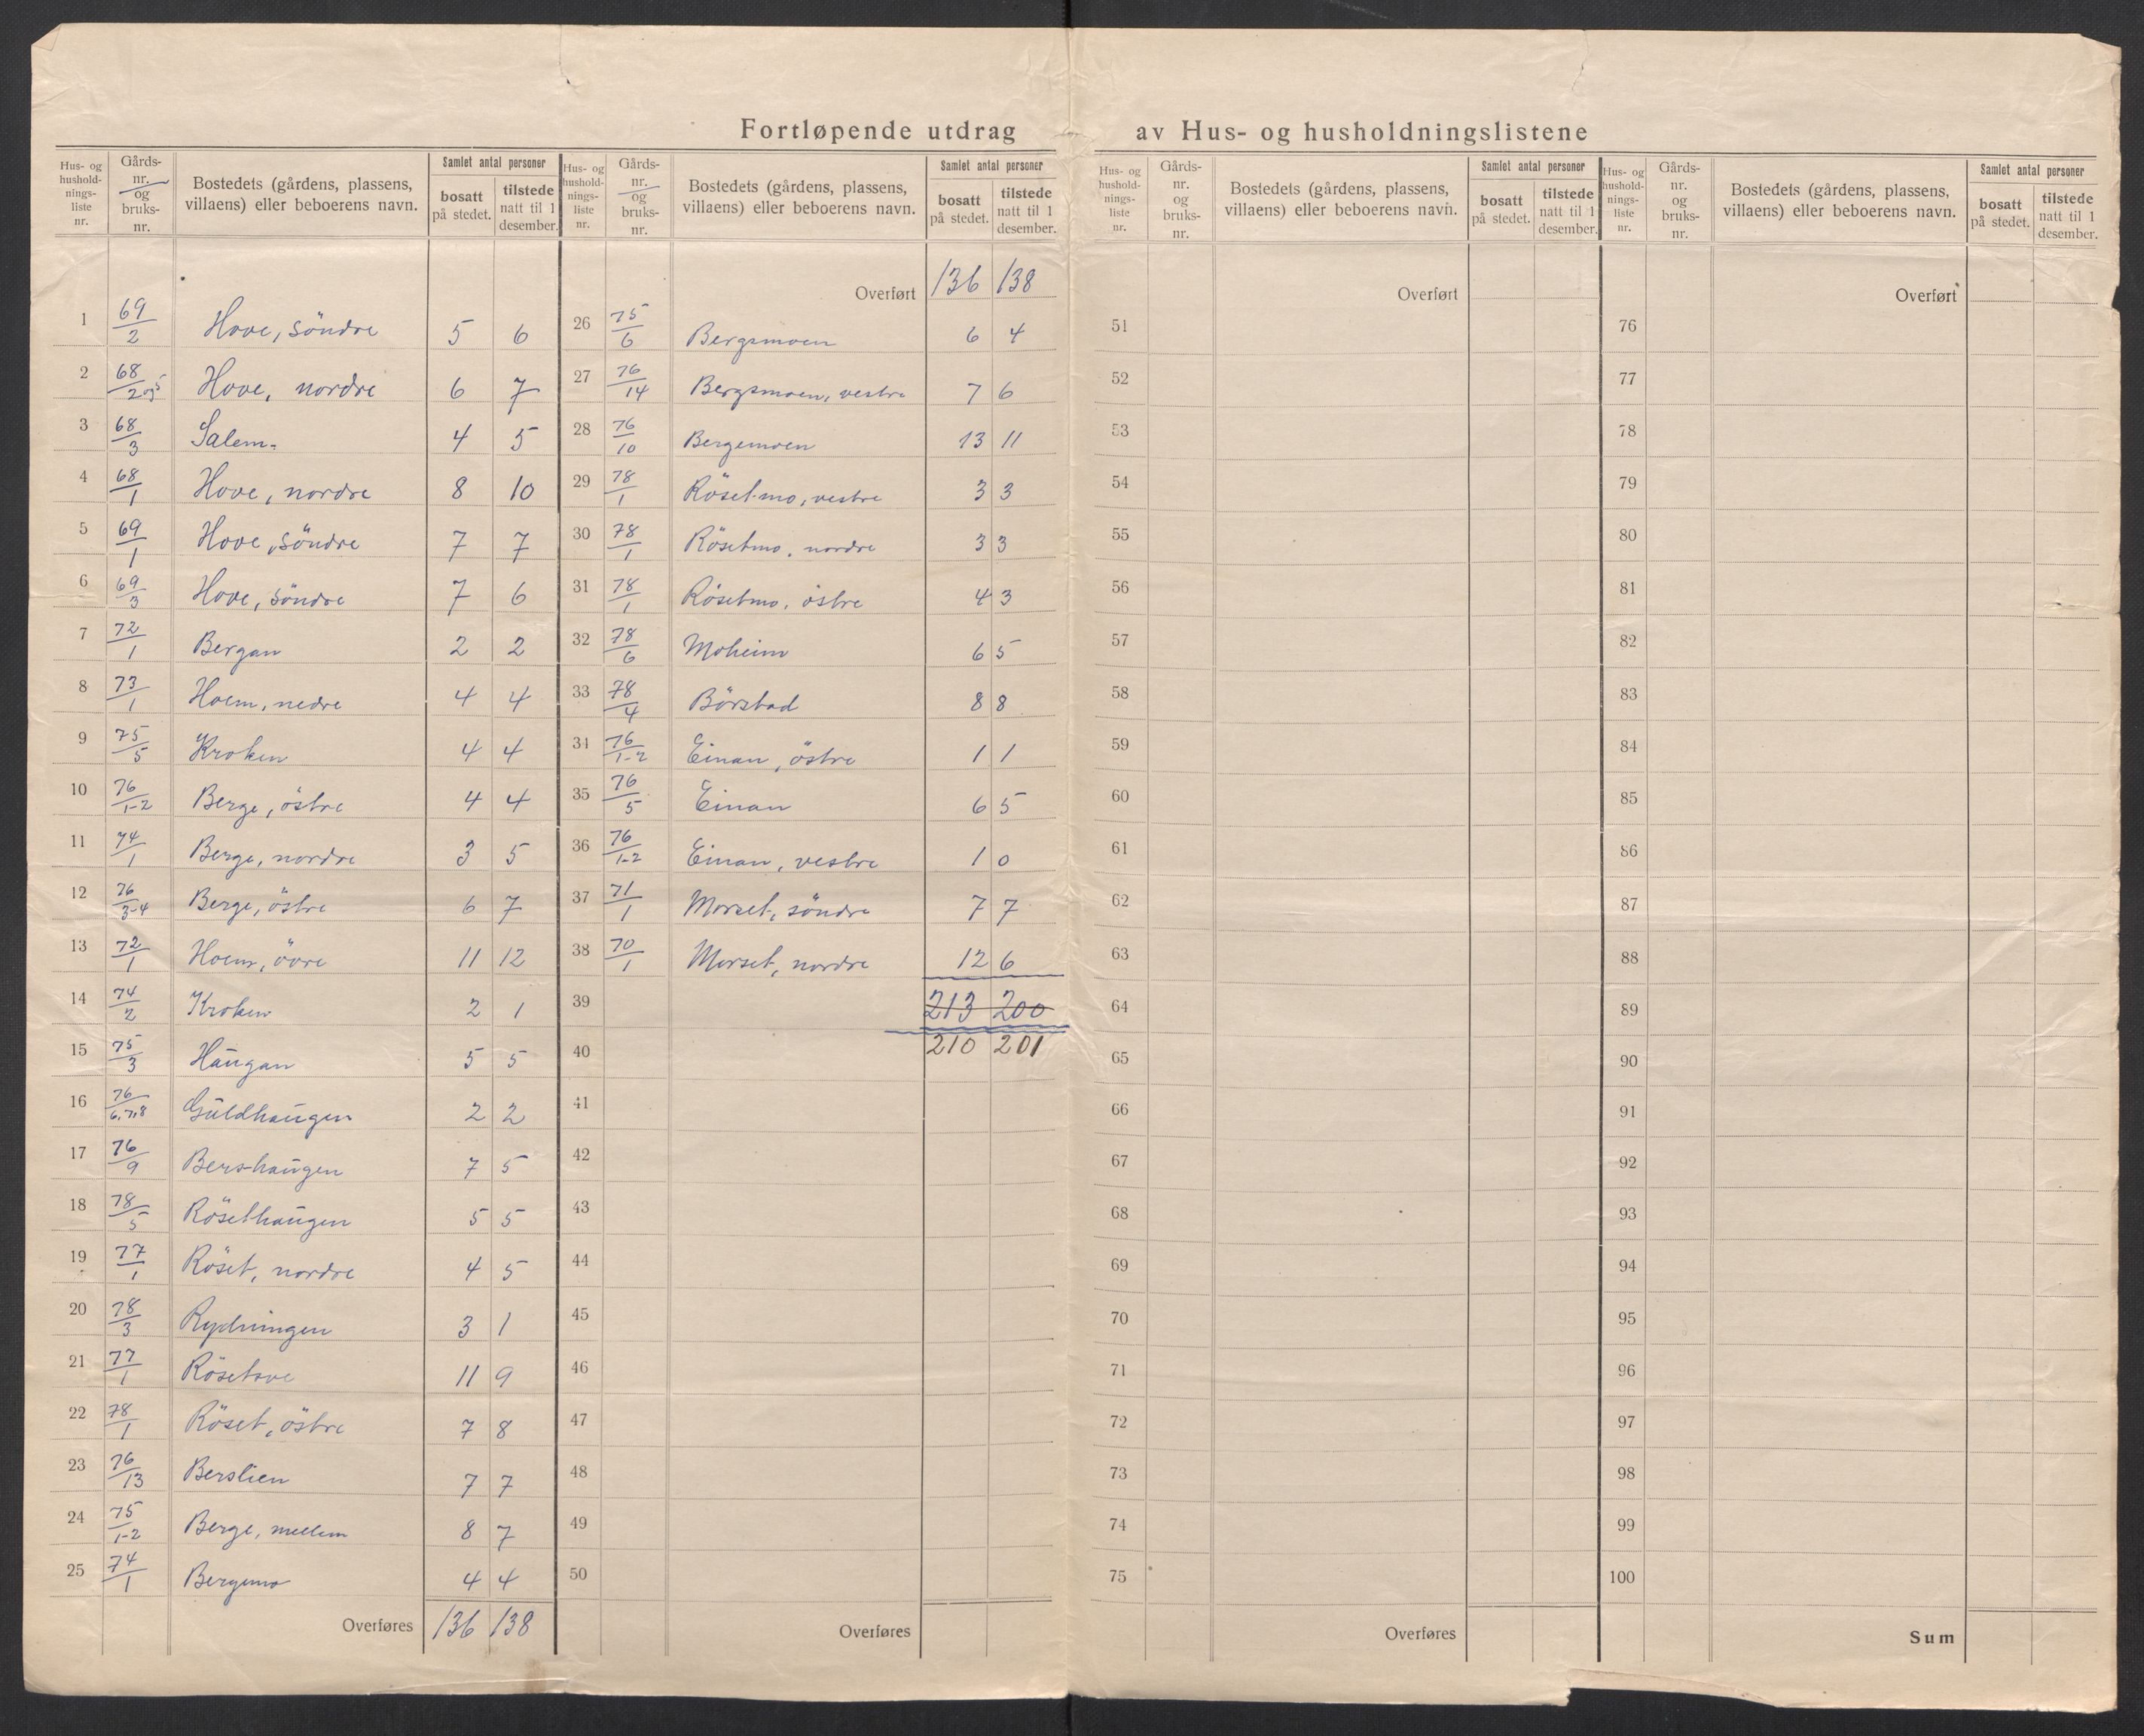 Fortløpende utdrag av Hus- og husholdningslistene
Hus- og husholdnings-liste nr. Gårds-nr. og bruks-nr. Bostedets (gårdens, plassens, villaens) eller beboerens navn. Samlet antal personer bosatt på stedet. tilstede natt til 1 desember.
1 69/2 Hove, söndre 5 6
2 68/2 og 5 Hove, nordre 6 7
3 68/3 Salem 4 5
4 68/1 Hove, nordre 8 10
5 69/1 Hove, söndre 7 7
6 69/3 Hove, söndre 7 6
7 72/1 Bergan 2 2
8 73/1 Hoem, nedre 4 4
9 75/5 Kroken 4 4
10 76/1-2 Berge, östre 4 4
11 74/1 Berge, nordre 3 5
12 76/3-4 Berge, östre 6 7
13 72/1 Hoem, övre 11 12
14 74/2 Kroken 2 1
15 75/3 Haugan 5 5
16 76/6,7,8 Guldhaugen 2 2
17 76/9 Bershaugen 7 5
18 78/5 Rösethaugen 5 5
19 77/1 Röset, nordre 4 5
20 78/3 Rydningen 3 1
21 77/1 Rösetove 11 9
22 78/1 Röset, östre 7 8
23 76/13 Berslien 7 7
24 75/1-2 Berge, mellem 8 7
25 74/1 Bergemo 4 4
Overføres 136 138
Hus- og husholdnings-liste nr. Gårds-nr. og bruks-nr. Bostedets (gårdens, plassens, villaens) eller beboerens navn. Samlet antal personer bosatt på stedet. tilstede natt til 1 desember.
Overført 136 138
26 75/6 Bergsmoen 6 4
27 76/14 Bergsmoen, vestre 7 6
28 76/10 Bergemoen 13 11
29 78/1 Rösetmo, vestre 3 3
30 78/1 Rösetmo, nordre 3 3
31 78/1 Rösetmo, östre 4 3
32 78/6 Moheim 6 5
33 78/4 Börstad 8 8
34 76/1-2 Einan, östre 1 1
35 76/5 Einan 6 5
36 76/1-2 Einan, vestre 1 0
37 71/1 Morset, söndre 7 7
38 70/1 Morset, nordre 12 6
39 213 200
40 210 201
41
42
43
44
45
46
47
48
49
50
Overføres
Hus- og husholdnings-liste nr. Gårds-nr. og bruks-nr. Bostedets (gårdens, plassens, villaens) eller beboerens navn. Samlet antal personer bosatt på stedet. tilstede natt til 1 desember.
Overført
51
52
53
54
55
56
57
58
59
60
61
62
63
64
65
66
67
68
69
70
71
72
73
74
75
Overføres
Hus- og husholdnings-liste nr. Gårds-nr. og bruks-nr. Bostedets (gårdens, plassens, villaens) eller beboerens navn. Samlet antal personer bosatt på stedet. tilstede natt til 1 desember.
Overført
76
77
78
79
80
81
82
83
84
85
86
87
88
89
90
91
92
93
94
95
96
97
98
99
100
Sum